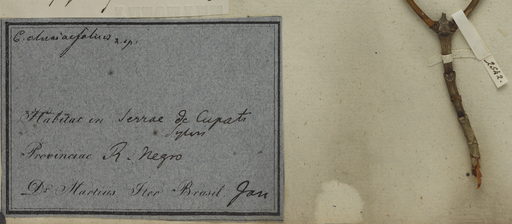 C. clusiaefolius n. sp.
Habitat in Serrae de Cupati
Sylvis
Provinciae R. Negro
Dr. Martius Iter Brasil. Jan
2542.